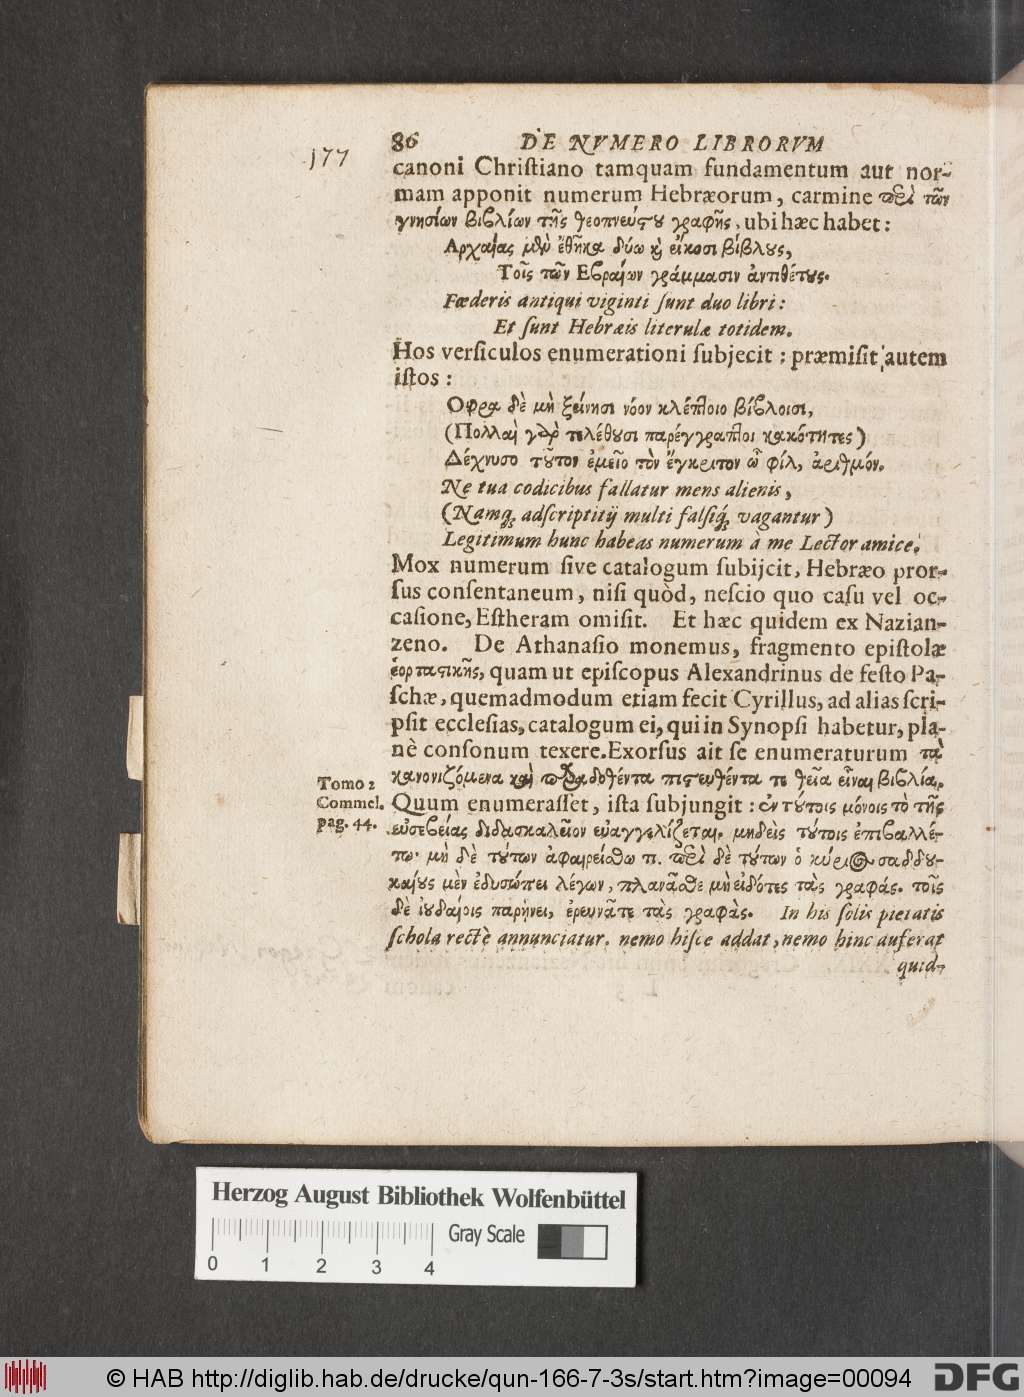 177
86 DE NVMERO LIBRORVM
canoni Chriſtiano tamquam fundamentum aut nor-
mam apponit numerum Hebræorum, carmine περὶ τῶν
γνησίων βιβλίων τῆς θεοπνεύστου γραφῆς, ubi hæc habet:
Αρχαίας μὲν ἔθηκα δύω καὶ εἴκοσι βίβλους,
Τοῖς τῶν Εβραίων γράμμασιν ἀντιθέτους.
Fœderis antiqui viginti ſunt duo libri:
Et ſunt Hebræis literulæ totidem.
Hos verſiculos enumerationi ſubjecit; præmiſit autem
iſtos:
Οφρα δὲ μὴ ξείνησι νόον κλέπτοιο βίβλοισι,
(Πολλαὶ γὰρ τελέθουσι παρέγγραπτοι κακότητες)
Δέχνυσο τοῦτον ἐμεῖο τὸν ἔγκριτον ὦ φίλ, ἀριθμόν.
Ne tua codicibus fallatur mens alienis,
(Namq; adſcriptitij multi falſiq́; vagantur)
Legitimum hunc habeas numerum à me Lector amice.
Mox numerum ſive catalogum ſubijcit, Hebræo pror-
ſus conſentaneum, niſi quòd, neſcio quo caſu vel oc-
caſione, Eſtheram omiſit. Et hæc quidem ex Nazian-
zeno. De Athanaſio monemus, fragmento epiſtolæ
ἑορταστικῆς, quam ut epiſcopus Alexandrinus de feſto Pa-
ſchæ, quemadmodum etiam fecit Cyrillus, ad alias ſcri-
pſit eccleſias, catalogum ei, qui in Synopſi habetur, pla-
nè conſonum texere. Exorſus ait ſe enumeraturum τὰ
κανονιζόμενα καὶ παραδοθέντα πιστευθέντα τε θεῖα εἶναι βιβλία.
Tomo 2
Commel.
pag. 44.
Quum enumeraſſet, iſta ſubjungit: ἐν τούτοις μόνοις τὸ τῆς
εὐσεβείας διδασκαλεῖον εὐαγγελίζεται. μηδεὶς τούτοις ἐπιβαλλέ-
τω· μὴ δὲ τούτων ἀφαιρείσθω τι. περὶ δὲ τούτων ὁ κύριος σαδδου-
καίους μὲν ἐδυσώπει λέγων, πλανᾶσθε μὴ εἰδότες τὰς γραφάς. τοῖς
δὲ ἰουδαίοις παρῄνει, ἐρευνᾶτε τὰς γραφὰς. In his ſolis pietatis
ſchola rectè annunciatur. nemo hiſce addat, nemo hinc auferat
quid-
Herzog August Bibliothek Wolfenbüttel
Gray Scale
0 1 2 3 4
© HAB http://diglib.hab.de/drucke/qun-166-7-3s/start.htm?image=00094
DFG